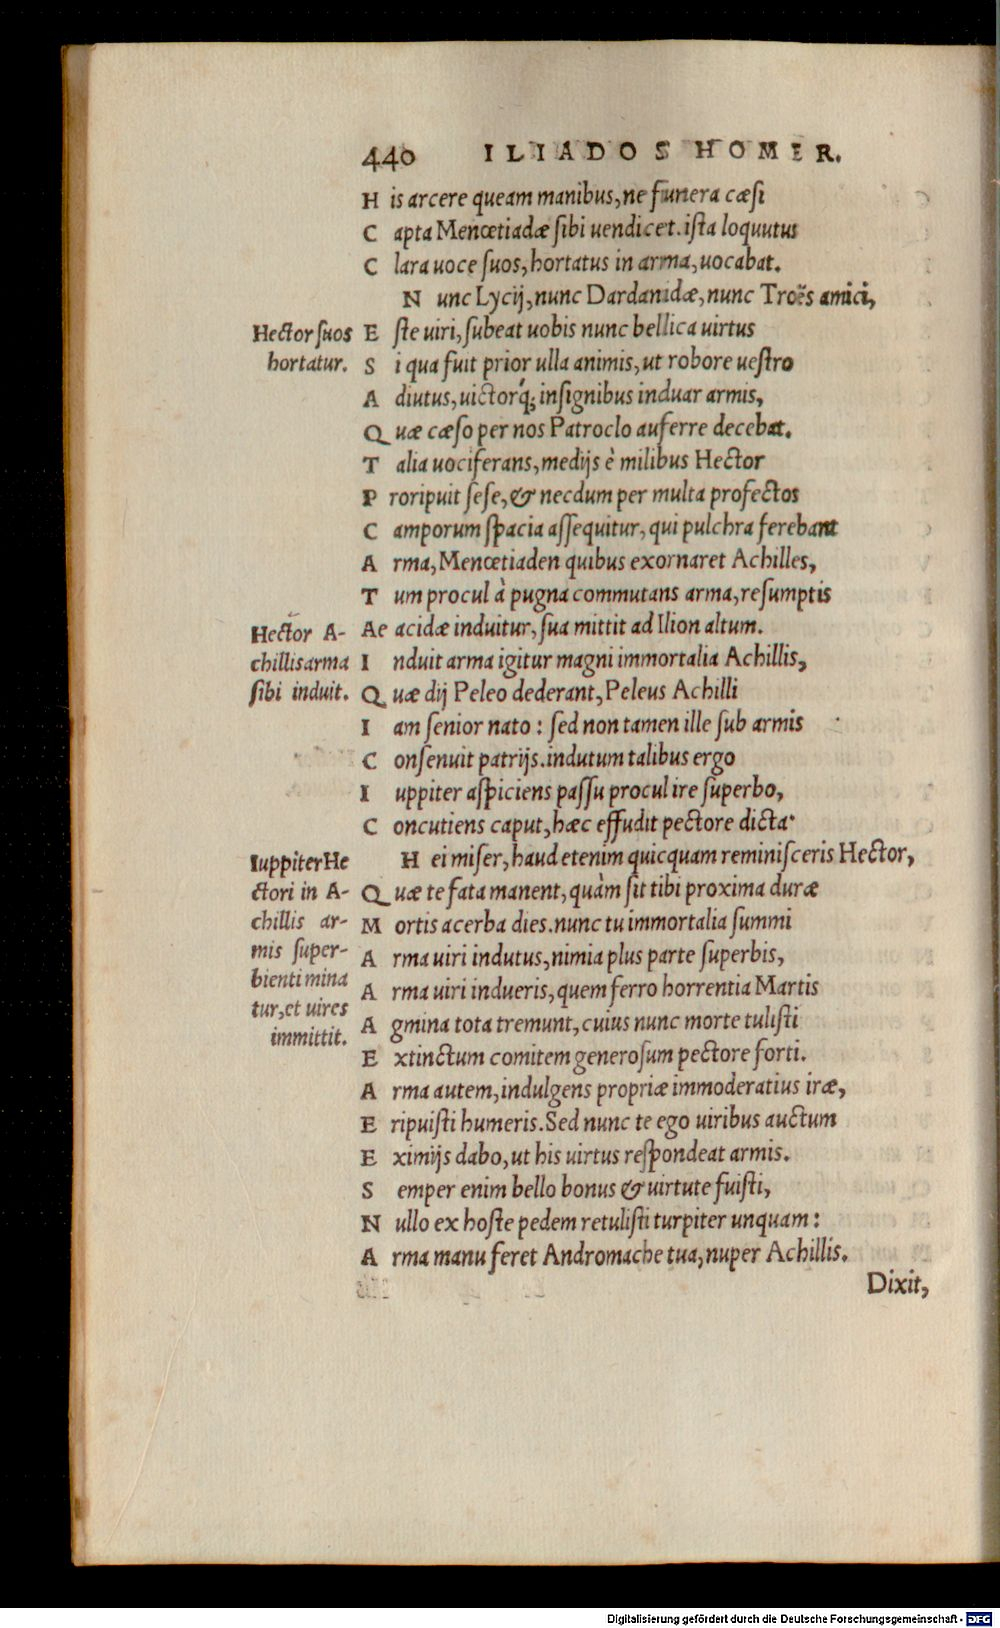 440 ILIADOS HOMER.
His arcere queam manibus, ne funera cæſi
Capta Menœtiadæ ſibi uendicet. iſta loquutus
Clara uoce ſuos, hortatus in arma, uocabat.
Nunc Lycij, nunc Dardanidæ, nunc Troës amici,
Hector ſuos
hortatur.
Eſte uiri, ſubeat uobis nunc bellica uirtus
Si qua fuit prior ulla animis, ut robore ueſtro
Adiutus, uictorq́; inſignibus induar armis,
Quæ cæſo per nos Patroclo auferre decebat.
Talia uociferans, medijs è milibus Hector
Proripuit ſeſe, & necdum per multa profectos
Camporum ſpacia aſſequitur, qui pulchra ferebant
Arma, Menœtiaden quibus exornaret Achilles,
Tum procul à pugna commutans arma, reſumptis
Hector A-
chillis arma
ſibi induit.
Aeacidæ induitur, ſua mittit ad Ilion altum.
Induit arma igitur magni immortalia Achillis,
Quæ dij Peleo dederant, Peleus Achilli
Iam ſenior nato: ſed non tamen ille ſub armis
Conſenuit patrijs. indutum talibus ergo
Iuppiter aſpiciens paſſu procul ire ſuperbo,
Concutiens caput, hæc effudit pectore dicta.
Iuppiter He
ctori in A-
chillis ar-
mis ſuper-
bienti mina
tur, et uires
immittit.
Hei miſer, haud etenim quicquam reminiſceris Hector,
Quæ te fata manent, quàm ſit tibi proxima duræ
Mortis acerba dies. nunc tu immortalia ſummi
Arma uiri indutus, nimia plus parte ſuperbis,
Arma uiri indueris, quem ferro horrentia Martis
Agmina tota tremunt, cuius nunc morte tuliſti
Extinctum comitem generoſum pectore forti.
Arma autem, indulgens propriæ immoderatius iræ,
Eripuiſti humeris. Sed nunc te ego uiribus auctum
Eximijs dabo, ut his uirtus reſpondeat armis.
Semper enim bello bonus & uirtute fuiſti,
Nullo ex hoſte pedem retuliſti turpiter unquam:
Arma manu feret Andromache tua, nuper Achillis.
Dixit,
Digitalisierung gefördert durch die Deutsche Forschungsgemeinschaft - DFG